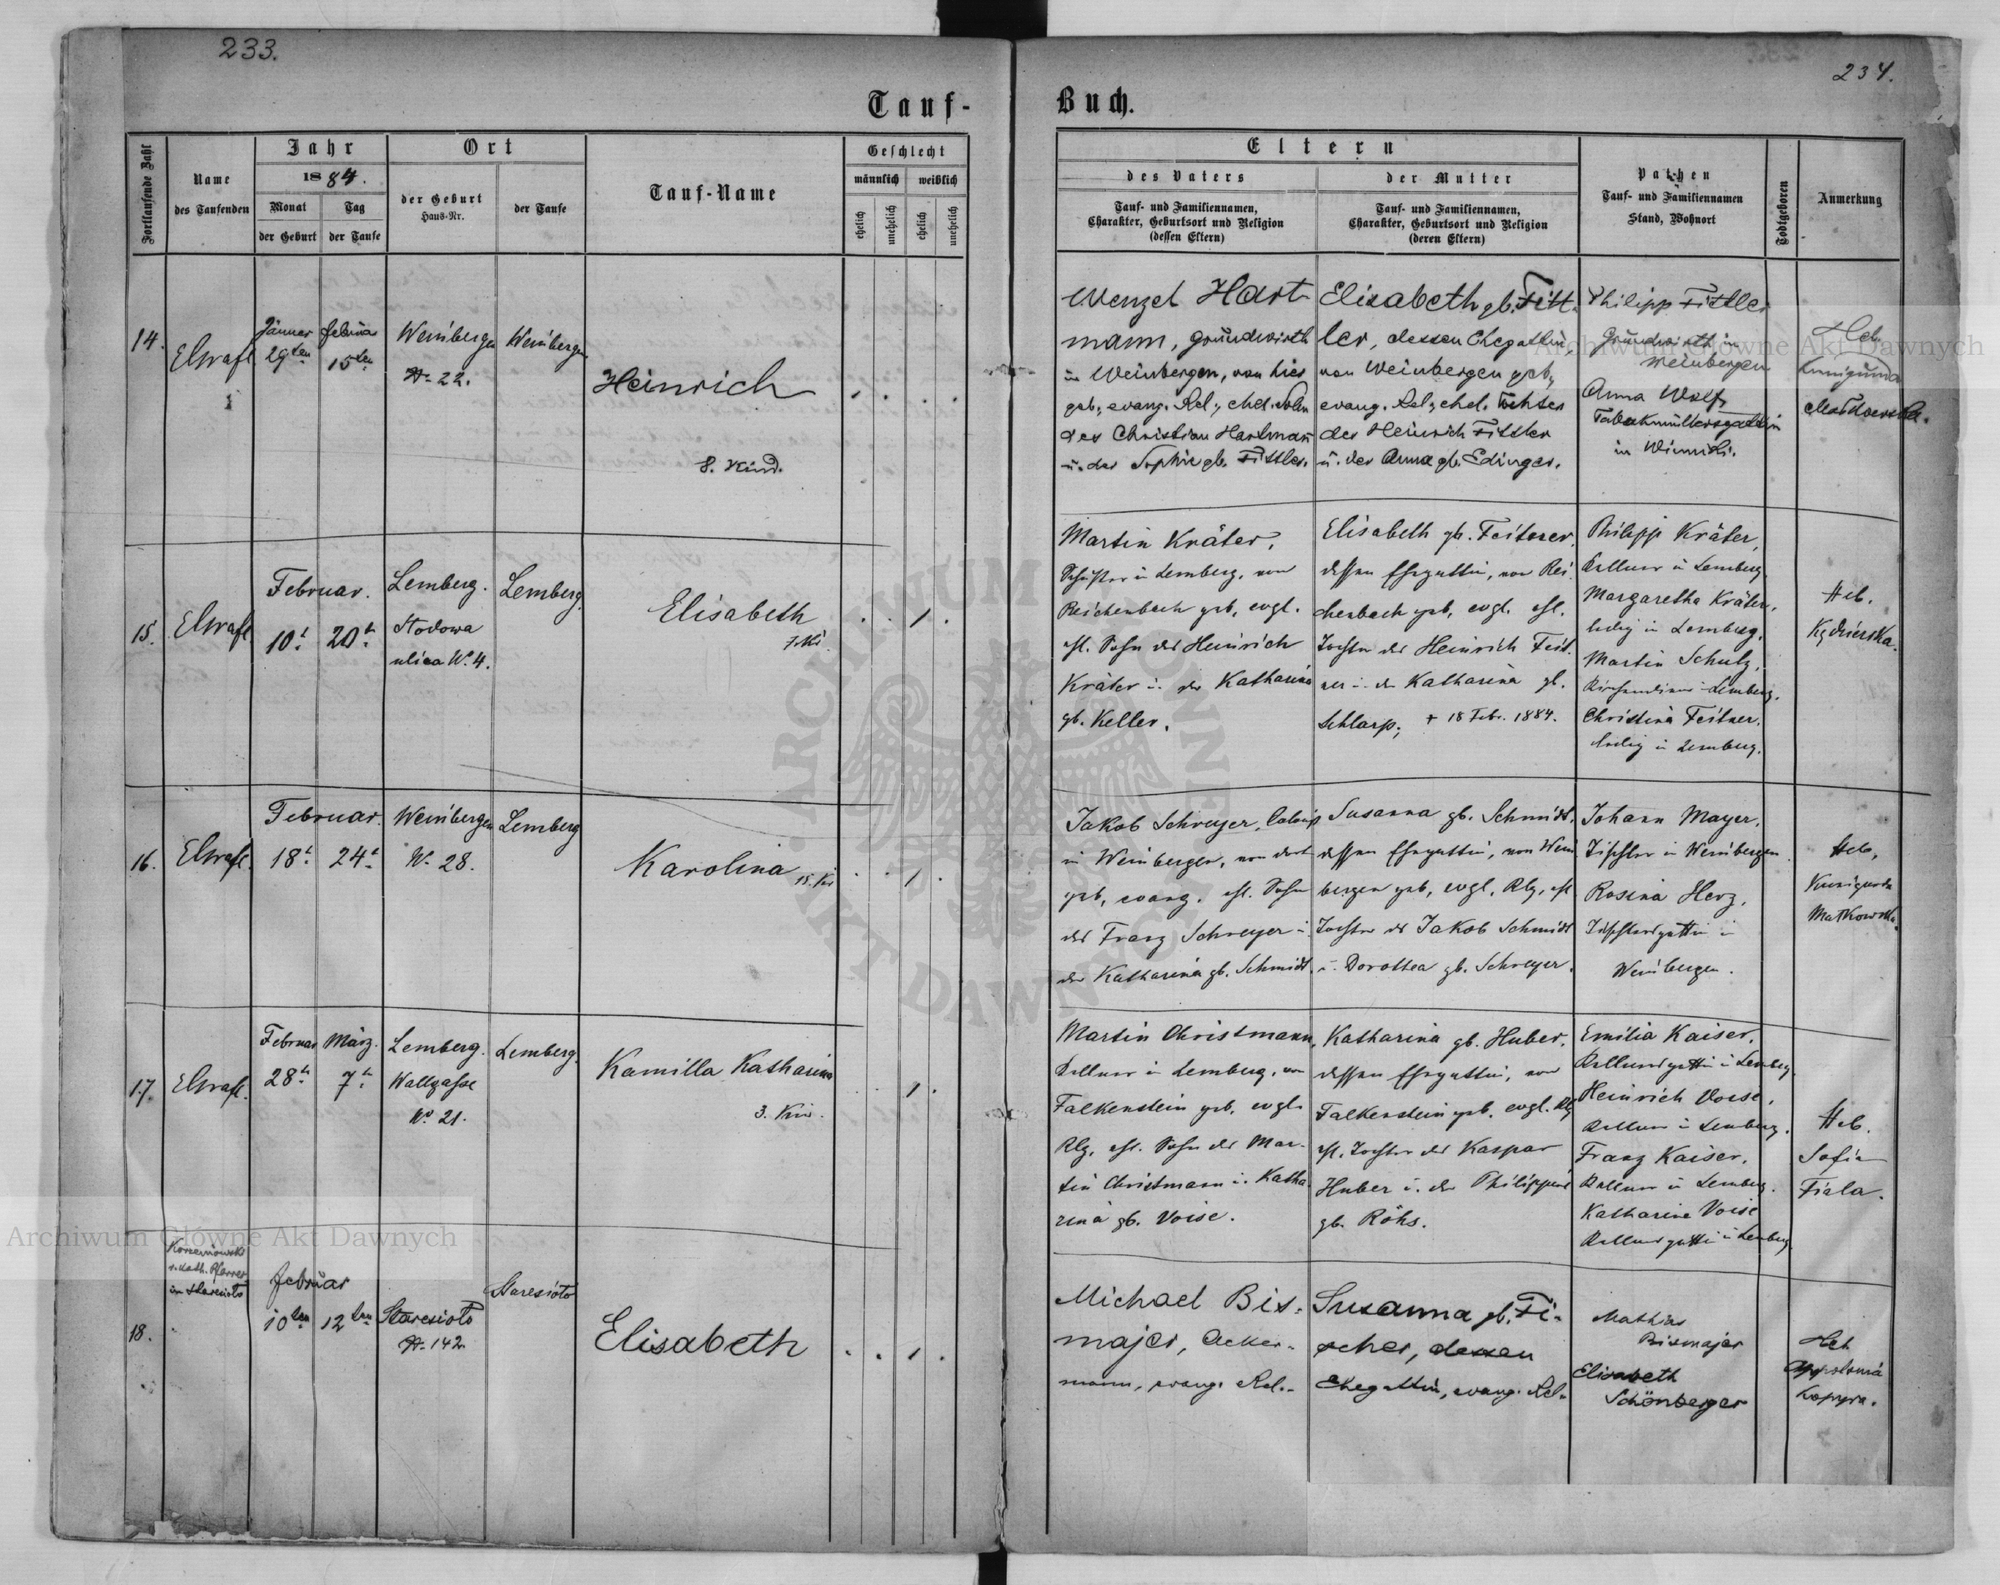 233.
234.
Tauf-
Buch.
Fortlaufende Zahl
Name
des Taufenden
Jahr
1884.
Monat
Tag
der Geburt
der Taufe
Ort
der Geburt
Haus-Nr.
der Taufe
Tauf-Name
Geschlecht
männlich
weiblich
ehelich
unehelich
ehelich
unehelich
Eltern
des Vaters
der Mutter
Tauf- und Familiennamen,
Charakter, Geburtsort und Religion
(dessen Eltern)
Tauf- und Familiennamen,
Charakter, Geburtsort und Religion
(deren Eltern)
Pathen
Tauf- und Familiennamen
Stand, Wohnort
Todtgeboren
Anmerkung
14.
Jänner
29ten
Februar
15ten
Weinbergen
N. 22.
Weinbergen
Heinrich
8. Kind.
Wenzel Hart-
mann, Grundwirth
in Weinbergen, von hier
geb., evang. Rel., ehel. Sohn
des Christian Hartmann
u. der Sophie gb. Fittler.
Elisabeth gb. Fitt-
ler, dessen Ehegattin,
von Weinbergen geb.,
evang. Rel., ehel. Tochter
des Heinrich Fittler
u. der Anna gb. Edinger.
Philipp Fittler
Grundwirth in
Weinbergen
Anna Wolf,
in Winniki.
Heb.
Kunigunda
15.
Februar.
10t
20t
Lemberg.
Stodowa
ulica No. 4.
Lemberg.
Elisabeth
Martin Kräter,
Schuster in Lemberg, von
Reichenbach geb, evgl.
ehl. Sohn des Heinrich
Kräter u. der Katharina
gb. Keller.
Elisabeth gb. Feiterer,
dessen Ehegattin, von Rei-
chenbach geb, evgl. ehl.
Tochter des Heinrich Feit-
ner u. der Katharina gb.
Schlarp; + 18 Febr. 1884.
Philipp Kräter,
Kellner in Lemberg.
Margaretha Kräter,
ledig in Lemberg.
Martin Schulz,
Christina Feitner,
ledig in Lemberg.
Heb.
16.
Februar.
18t
24t
Weinbergen
No 28.
Lemberg
Karolina
15. Ki
Jakob Schreyer,
in Weinbergen, von dort
geb, evang. ehl. Sohn
des Franz Schreyer u.
der Katharina gb. Schmidt.
Susanna gb. Schmidt,
dessen Ehegattin, von Wein
bergen geb, evgl. Rlg, ehl
Tochter des Jakob Schmidt
u. Dorothea gb. Schreyer.
Johann Mayer,
Tischler in Weinbergen.
Rosina Herz,
Tischlersgattin in
Weinbergen.
Heb,
Kunigunda
Matkowska.
17.
Februar
28t
März.
7t
Lemberg.
Wallgasse
No 21.
Lemberg.
Kamilla Katharina
3. Kind.
Martin Christmann,
Kellner in Lemberg, von
Falkenstein geb, evgl.
Rlg, ehl. Sohn des Mar-
tin Christmann u. Katha
rina gb. Voise.
Katharina gb. Huber,
dessen Ehegattin, von
Falkenstein geb. evgl. Rlg
ehl. Tochter des Kaspar
Huber u. der Philippine
gb. Röhs.
Emilia Kaiser,
Kellnersgattin in Lemberg
Heinrich Voise,
Kellner in Lemberg.
Franz Kaiser,
Kellner in Lemberg.
Katharina Voise
Kellnersgattin in Lemberg.
Heb.
Sofia
Fiala.
18.
Korzeniowski
r. kath. Pfarrer
in Staresioło
Februar
10ten
12ten
Staresioło
N. 142
Staresioło
Elisabeth
Michael Bis-
majer, Acker-
mann, evang. Rel.-
Susanna gb. Fi-
scher, dessen
Ehegattin, evang. Rel-
Mathias
Bismajer
Elisabeth
Schönberger
Heb
Archiwum Główne Akt Dawnych
Archiwum Główne Akt Dawnych
ARCHIWUM GŁÓWNE AKT DAWNYCH